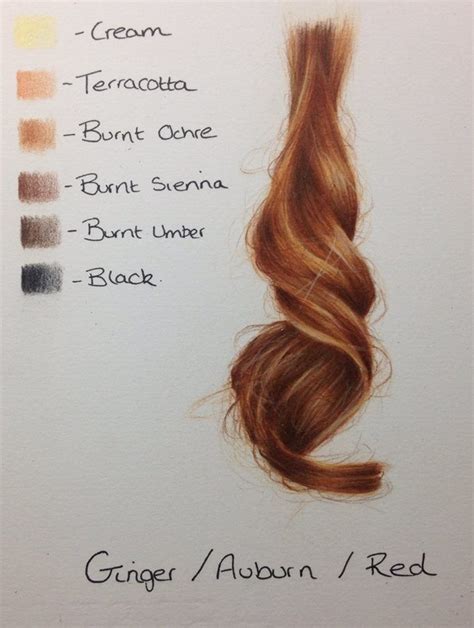 - Cream
- Terracotta
- Burnt Ochre
- Burnt Sienna
- Burnt Umber
- Black.
Ginger / Auburn / Red